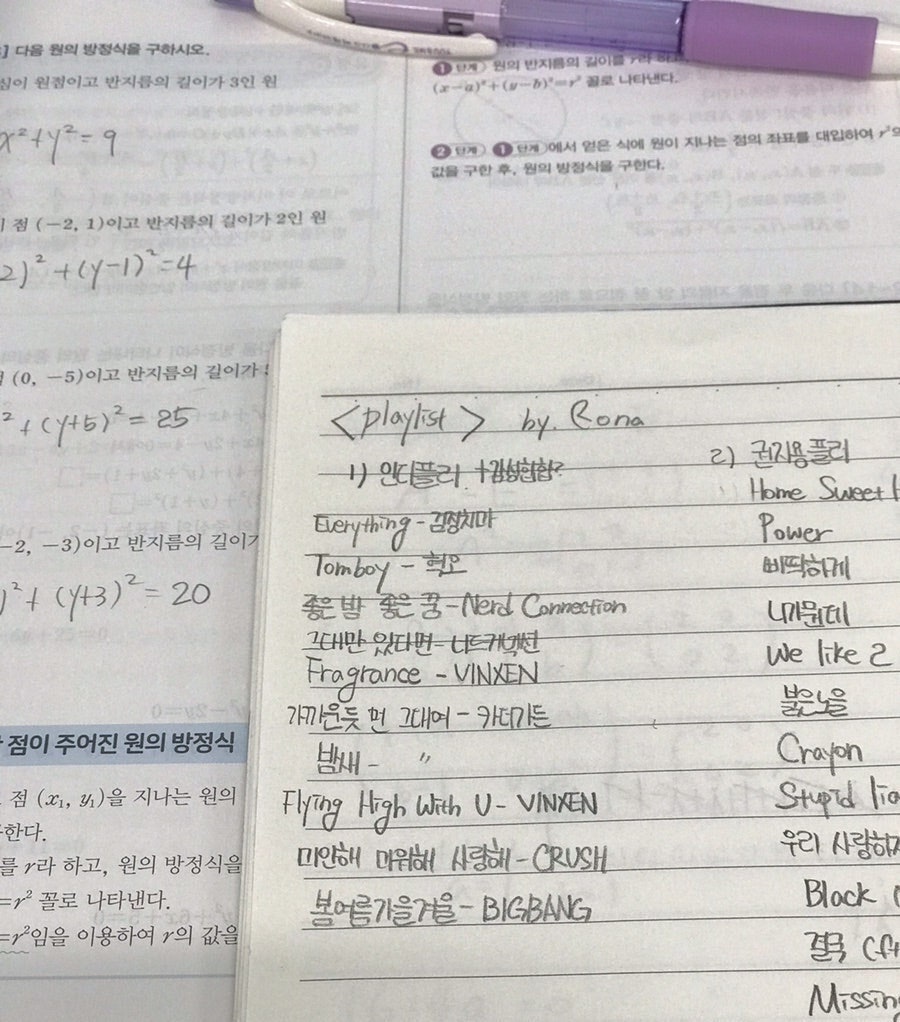 ] 다음 원의 방정식을 구하시오.
심이 원점이고 반지름의 길이가 3인 원
x²+y²=9
점 (-2, 1)이고 반지름의 길이가 2인 원
2)²+(y-1)²=4
(0, -5)이고 반지름의 길이가
²+(y+5)²=25
-2, -3)이고 반지름의 길이가
)²+(y+3)²=20
점이 주어진 원의 방정식
점 (x₁, y₁)을 지나는 원의
한다.
를 r라 하고, 원의 방정식을
=r² 꼴로 나타낸다.
=r²임을 이용하여 r의 값을
❶ 단계 원의 반지름의 길이를 r라 하고
(x-a)²+(y-b)²=r² 꼴로 나타낸다.
❷ 단계 ❶ 단계 에서 얻은 식에 원이 지나는 점의 좌표를 대입하여 r²의
값을 구한 후, 원의 방정식을 구한다.
<playlist> by. Rona
1) 인디플리 +감성힙합?
Everything - 검정치마
Tomboy - 혁오
좋은 밤 좋은 꿈 - Nerd Connection
그대만 있다면 - 너드커넥션
Fragrance - VINXEN
가까운듯 먼 그대여 - 카더가든
밤새 - "
Flying High With U - VINXEN
미안해 미워해 사랑해 - CRUSH
봄여름가을겨울 - BIGBANG
2) 권지용플리
Home Sweet H
Power
삐딱하게
니가뭔데
We like 2
붉은노을
Crayon
Stupid lia
우리 사랑하지
Black
결국 (ft
Missing